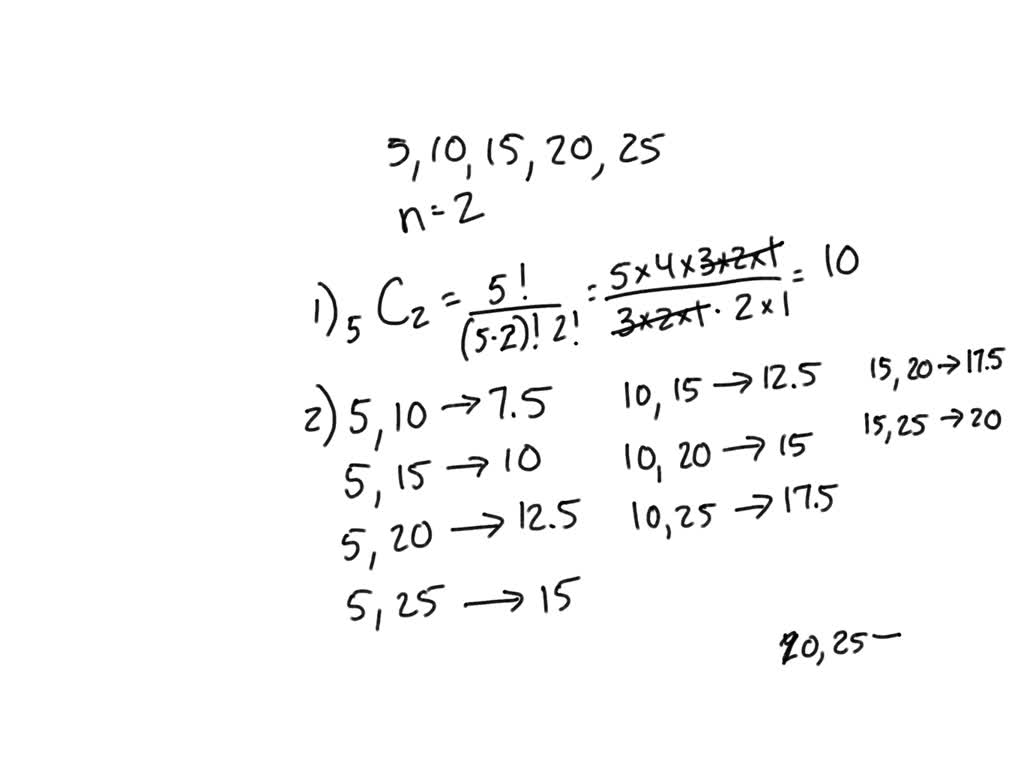 5, 10, 15, 20, 25
n = 2
1) ₅C₂ = 5! / (5-2)! 2! = 5×4×3×2×1 / 3×2×1 · 2×1 = 10
2) 5, 10 → 7.5
5, 15 → 10
5, 20 → 12.5
5, 25 → 15
10, 15 → 12.5
10, 20 → 15
10, 25 → 17.5
15, 20 → 17.5
15, 25 → 20
20, 25 —